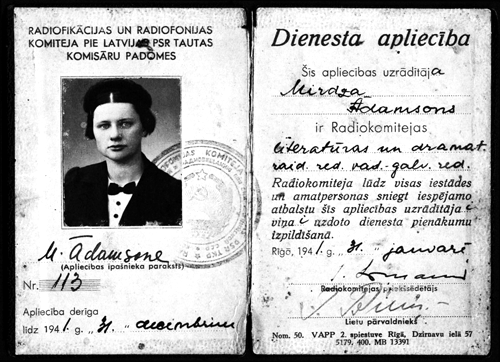 RADIOFIKĀCIJAS UN RADIOFONIJAS
KOMITEJA PIE LATVIJAS PSR TAUTAS
KOMISĀRU PADOMES
M. Ādamsone
(Apliecības īpašnieka paraksts)
Nr. 113
Apliecība derīga
līdz 1941. g. „31." decembrim
Dienesta apliecība
Šīs apliecības uzrādītāja
Mirdza
Ādamsons
ir Radiokomitejas
literatūras un dramat.
raid. red. vad.-galv. red.
Radiokomiteja lūdz visas iestādes
un amatpersonas sniegt iespējamo
atbalstu šīs apliecības uzrādītāja
viņa uzdoto dienesta pienākumu
izpildīšanā.
Rīgā, 1941. g. „31." janvarī
Radiokomitejas priekšsēdētājs
Lietu pārvaldnieks
Nom. 50. VAPP 2. spiestuve Rīgā, Dzirnavu ielā 57
5179, 400. MB 13391